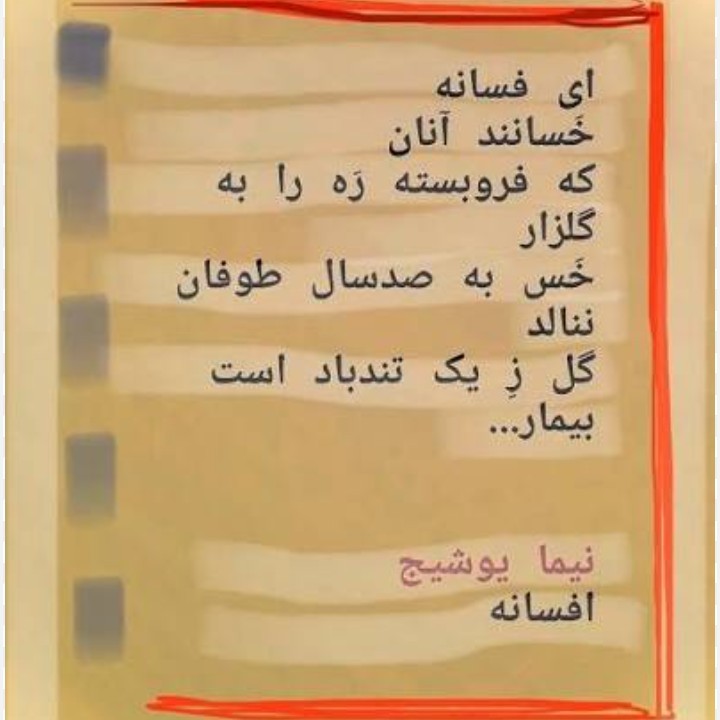 ای فسانه
خَسانند آنان
که فروبسته رَه را به
گلزار
خَس به صدسال طوفان
ننالد
گل زِ یک تندباد است
بیمار...
نیما یوشیج
افسانه